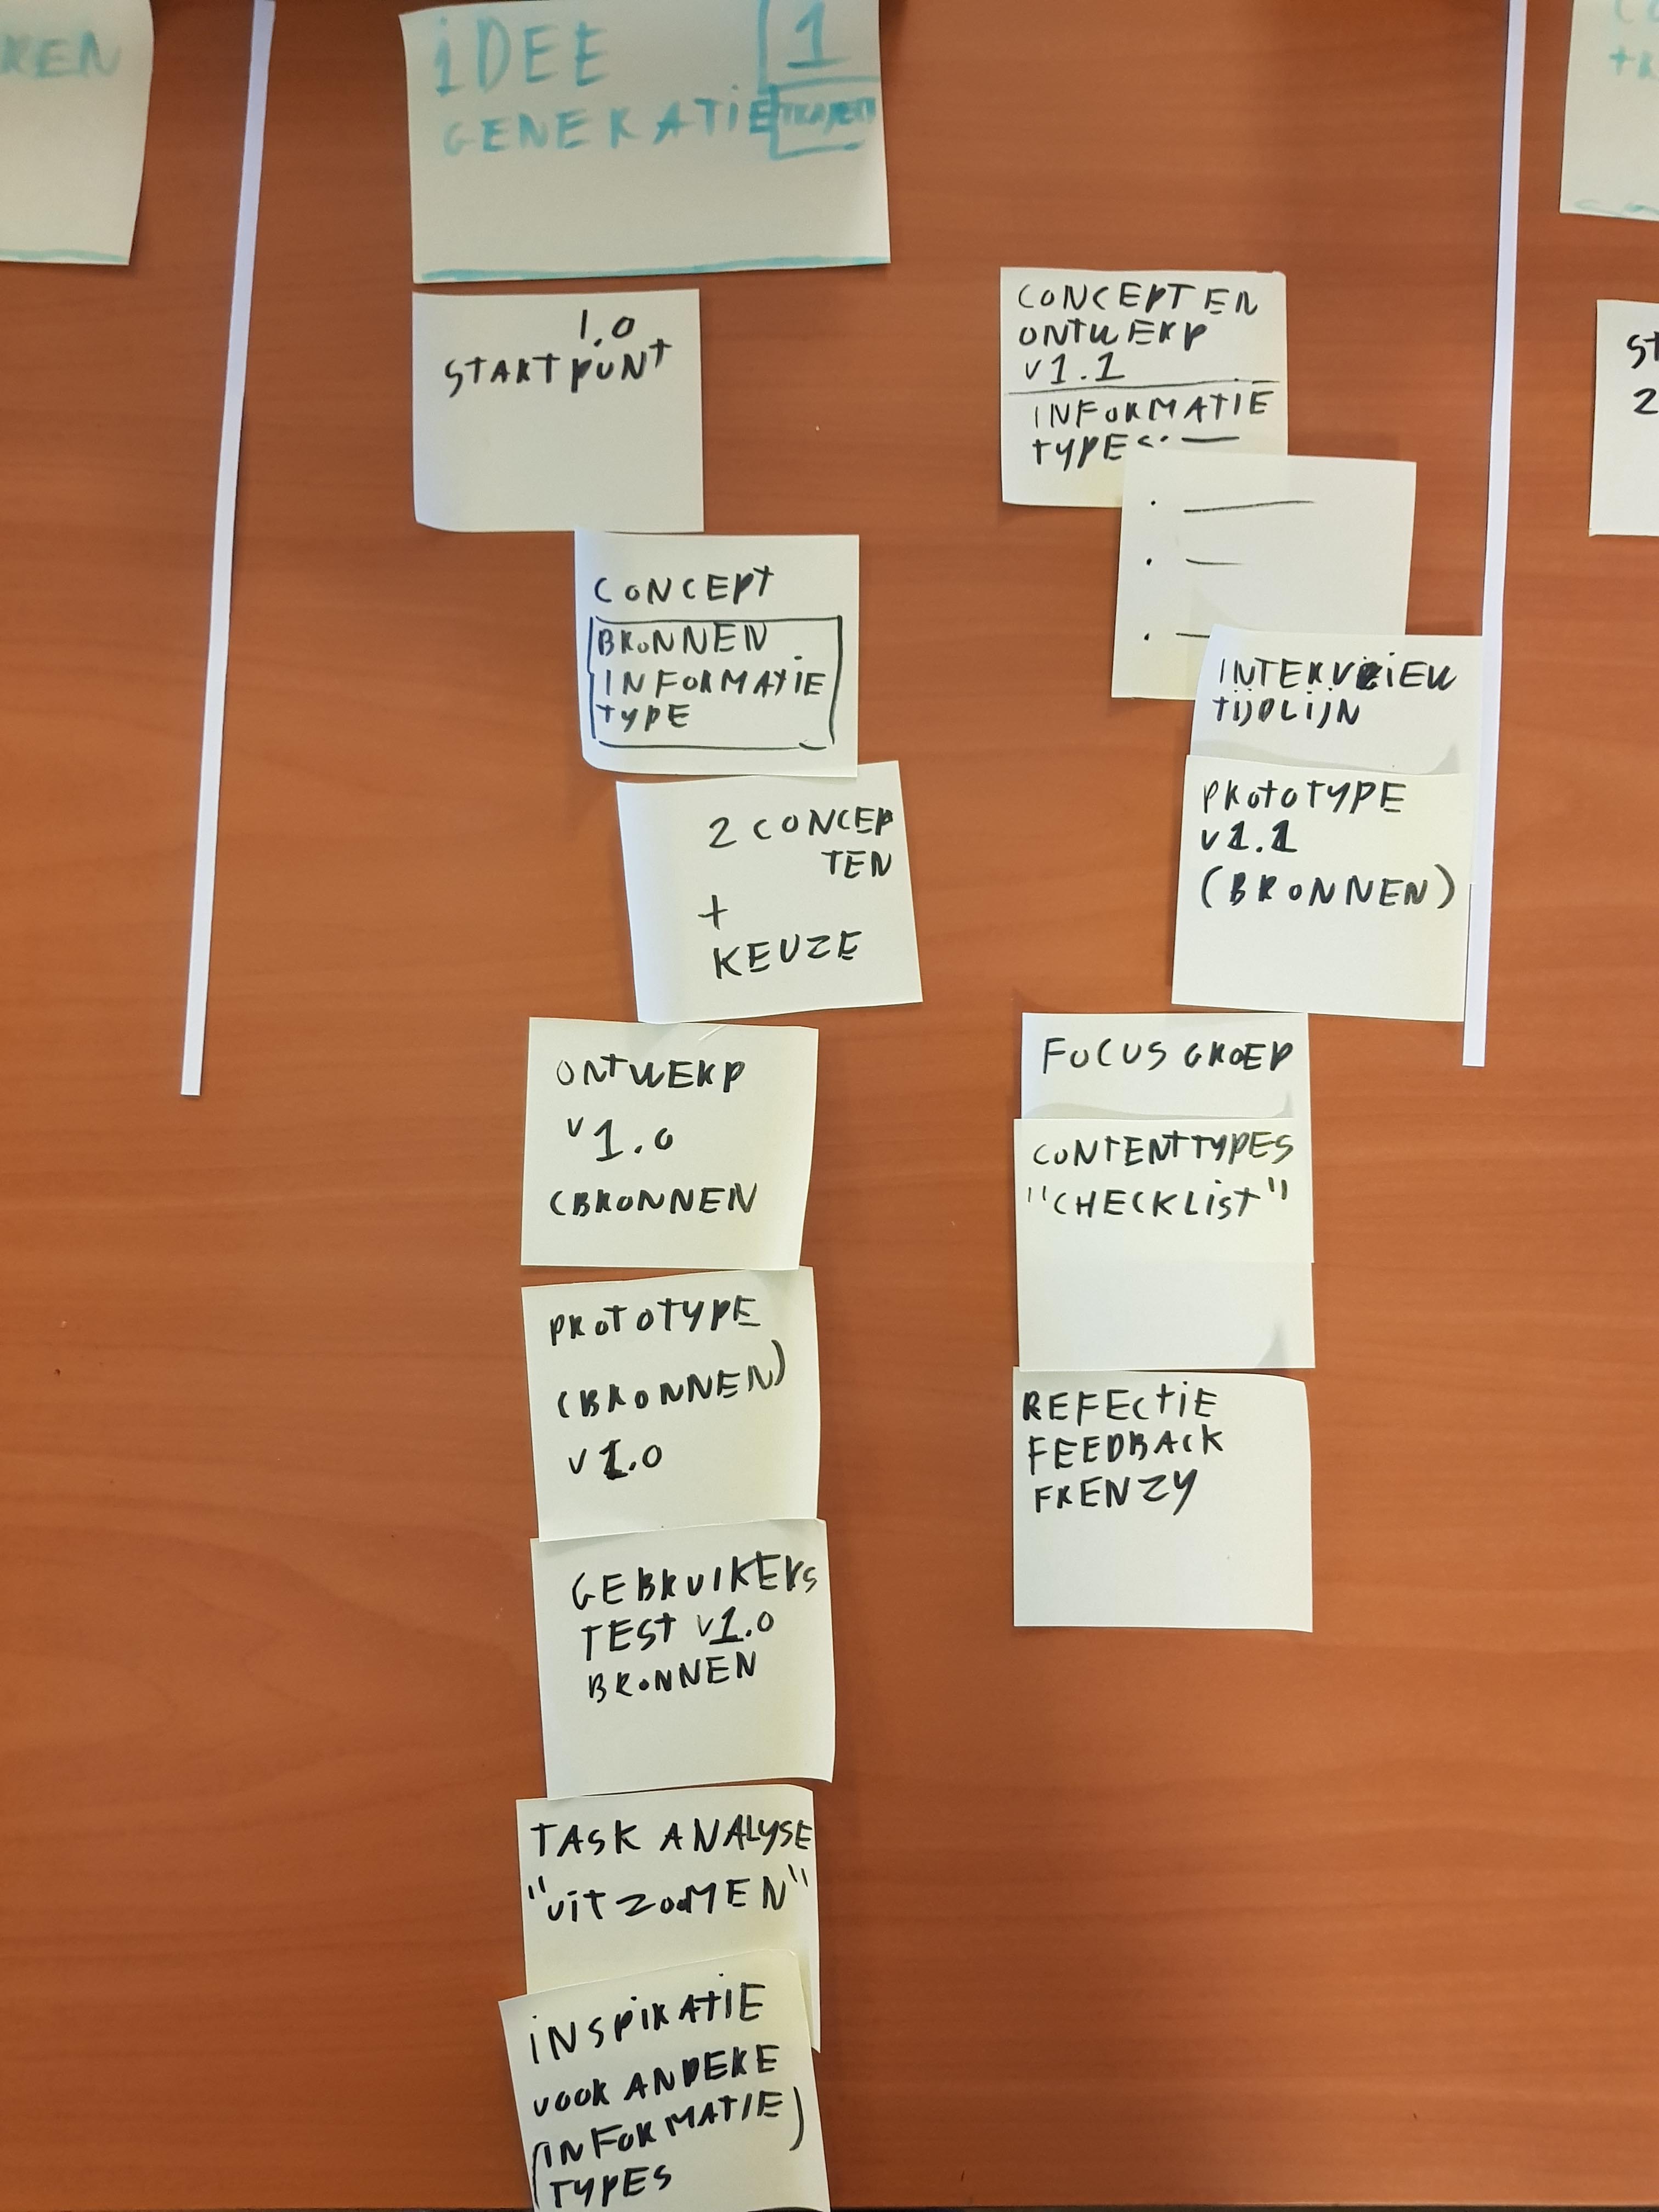 KEN
iDEE
GENERATIE
1
1.0
STARTPUNT
CONCEPT
BRONNEN
INFORMATIE
TYPE
2 CONCEP
TEN
+
KEUZE
ONTWERP
v1.0
(BRONNEN
PROTOTYPE
(BRONNEN)
v1.0
GEBRUIKERS
TEST v1.0
BRONNEN
TASK ANALYSE
"UITZOOMEN"
INSPIRATIE
VOOR ANDERE
(INFORMATIE)
TYPES
CONCEPT EN
ONTWERP
v1.1
INFORMATIE
TYPE
INTERVIEW
TIJDLIJN
PROTOTYPE
v1.1
(BRONNEN)
FOCUS GROEP
CONTENTTYPES
"CHECKLIST"
REFECTIE
FEEDBACK
FRENZY
ST
2